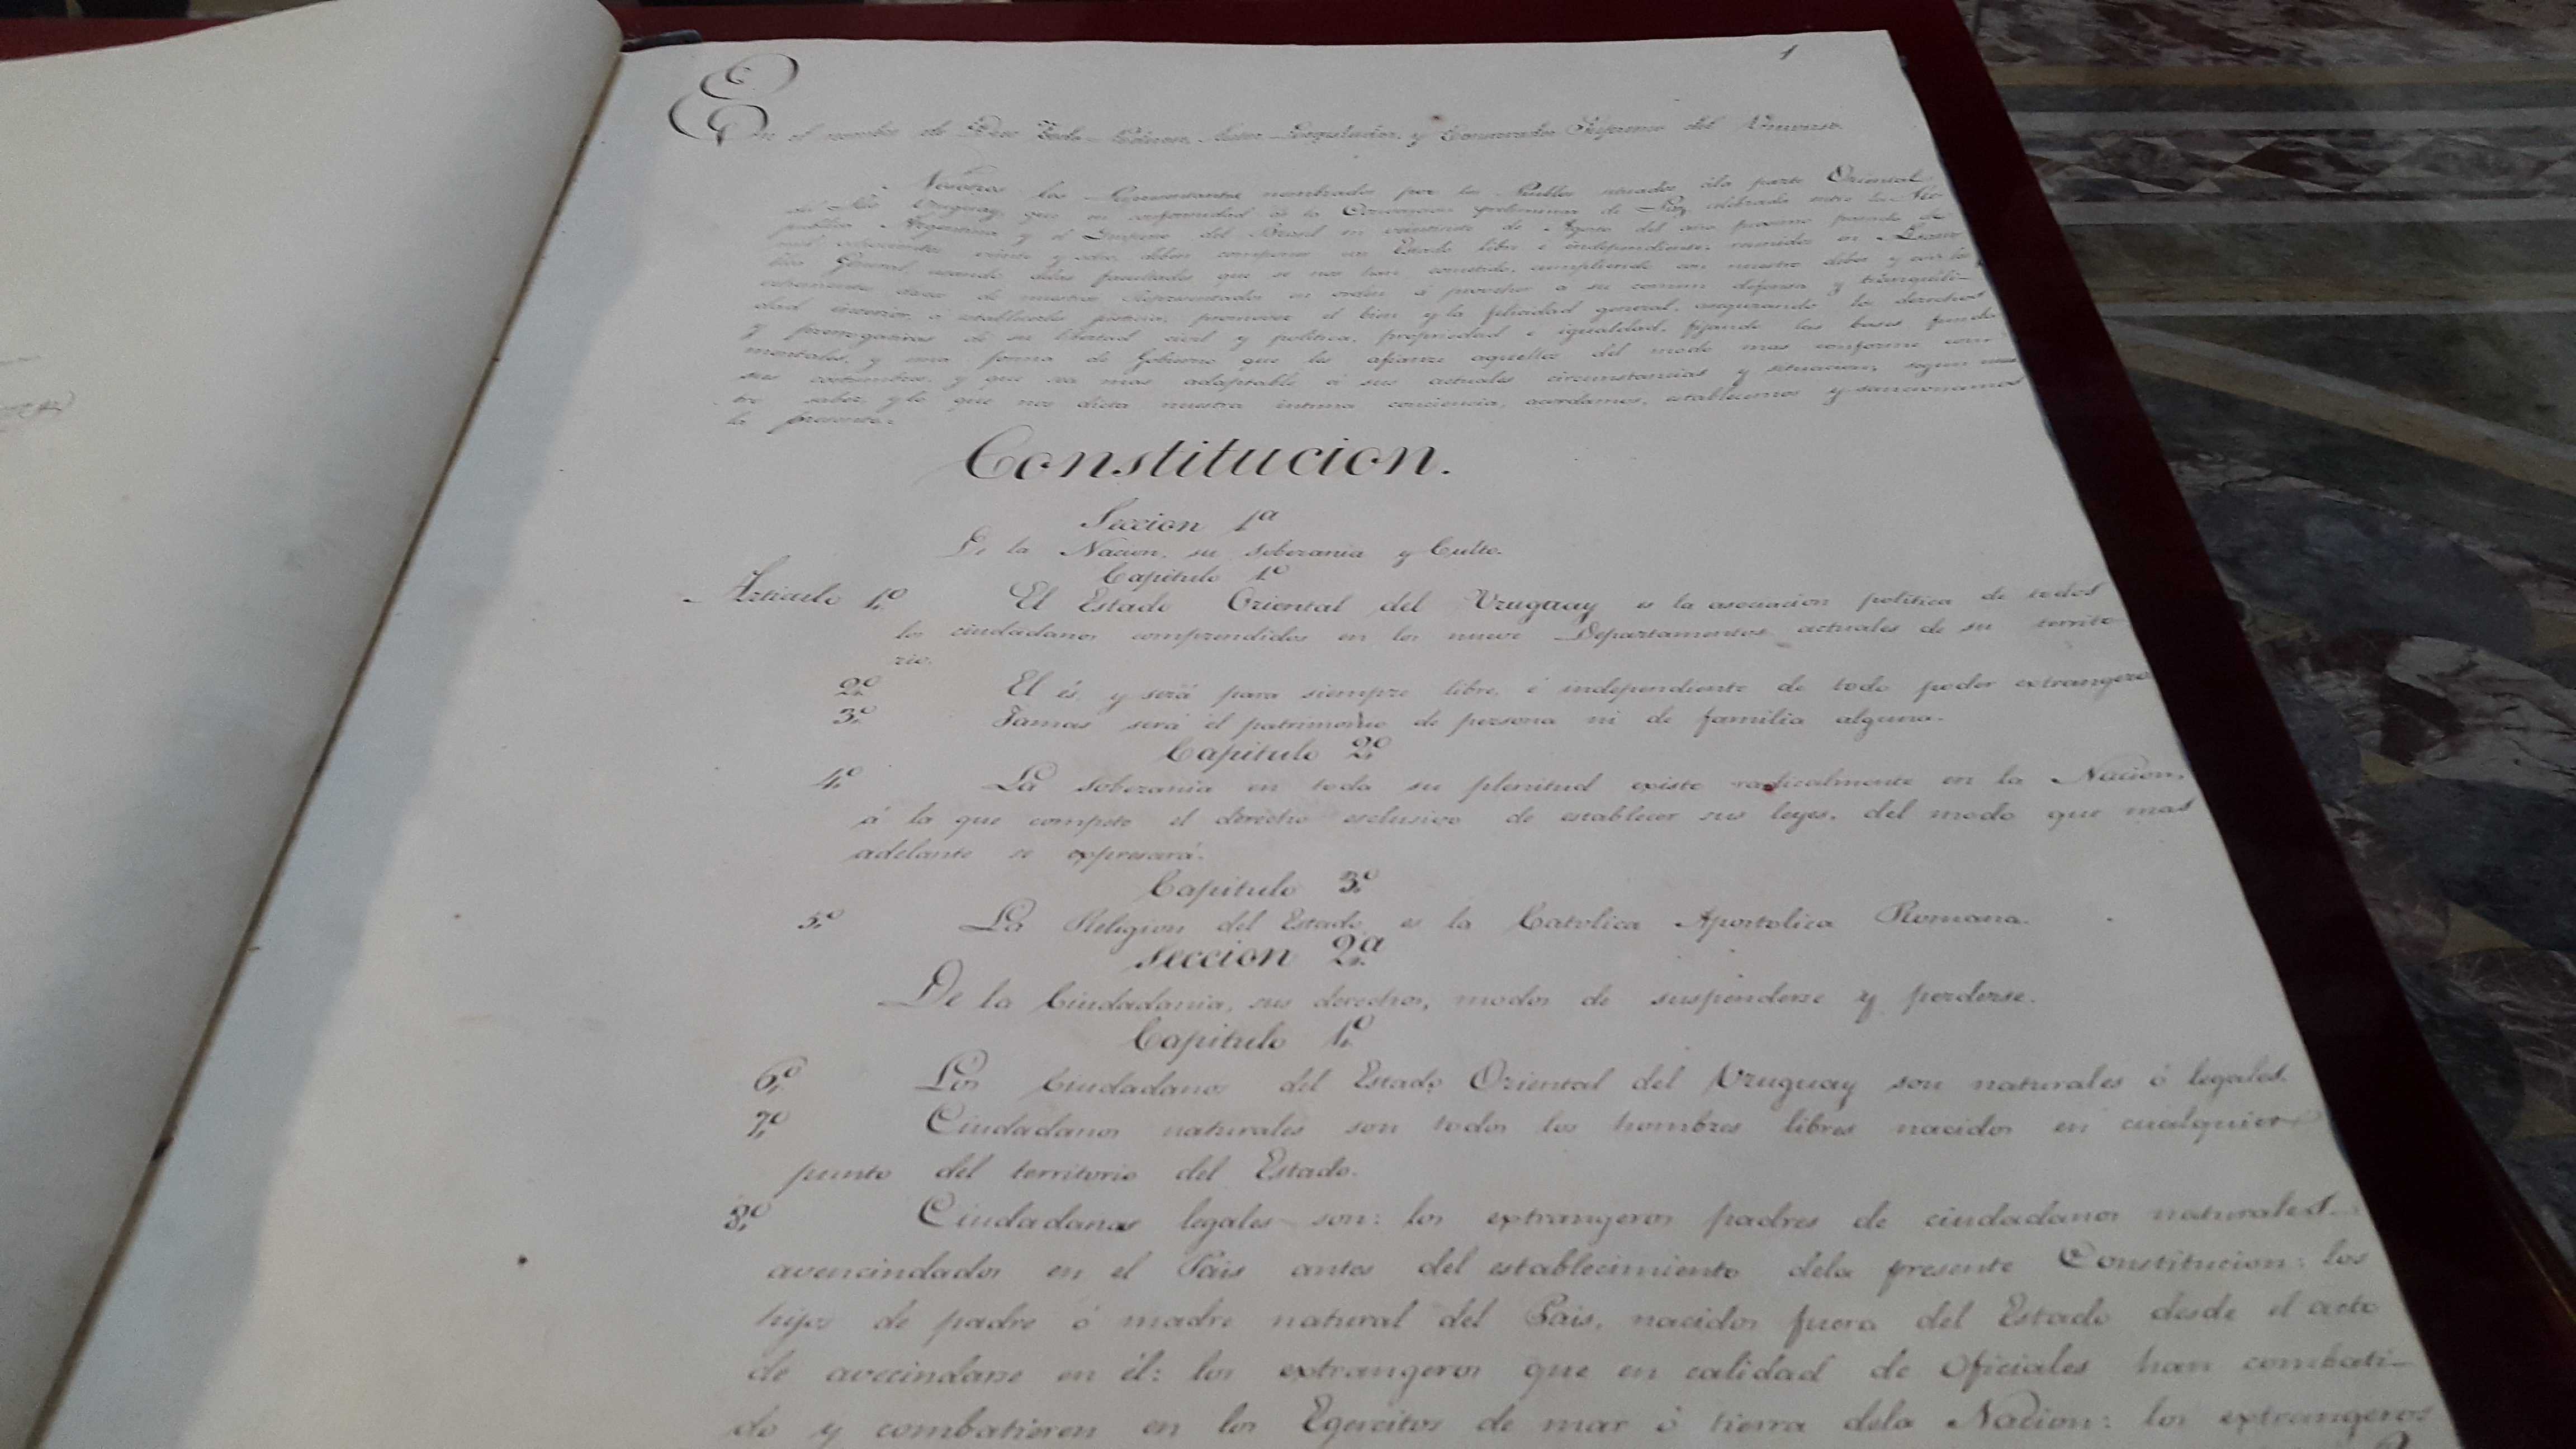 1
En el nombre de Dios Todo-Poderoso Autor Legislador, y Conservador Supremo del Universo.
Nosotros los Representantes nombrados por los Pueblos situados ála parte Oriental
del Rio Uruguay, que en conformidad de la Convencion preliminar de Paz, celebrada entre la Re-
publica Argentina, y el Imperio del Brasil en veintisiete de Agosto del año proximo pasado de
mil ochocientos veinte y ocho, deben componer un Estado libre é independiente; reunidos en Asam-
blea General, usando delas facultades que se nos han cometido, cumpliendo con nuestro deber y con los
vehementes deseos de nuestros Representados en orden á proveher á su comun defensa y tranquili-
dad interior, á establecerles justicia, promover el bien y la felicidad general, asegurando los derechos
y prerrogativas de su libertad civil y politica, propriedad é igualdad, fijando las bases funda-
mentales, y una forma de Gobierno que les afiance aquellos del modo mas conforme con
sus costumbres, y que sea mas adaptable á sus actuales circunstancias y situacion, segun nues-
tro saber, y lo que nos dicta nuestra intima conciencia, acordamos, establecemos y sancionamos
la presente.
Constitucion.
Seccion 1ª
De la Nacion, su soberania y Culto.
Capitulo 1º
Articulo 1º El Estado Oriental del Uruguay es la asociacion politica de todos
los ciudadanos comprendidos en los nueve Departamentos actuales de su territo-
rio.
2º El és y será para siempre libre, é independiente de todo poder extrangero
3º Jamas será el patrimonio de persona ni de familia alguna.
Capitulo 2º
4º La soberania en toda su plenitud existe radicalmente en la Nacion,
á la que compete el derecho esclusivo de establecer sus leyes, del modo que mas
adelante se expresará.
Capitulo 3º
5º La Religion del Estado es la Catolica Apostolica Romana.
Seccion 2ª
De la Ciudadania, sus derechos, modos de suspenderse y perderse.
Capitulo 1º
6º Los Ciudadanos del Estado Oriental del Uruguay son naturales ó legales.
7º Ciudadanos naturales son todos los hombres libres nacidos en cualquier
punto del territorio del Estado.
8º Ciudadanos legales son: los extrangeros padres de ciudadanos naturales
avencindados en el Pais antes del establecimiento dela presente Constitucion: los
hijos de padre ó madre natural del Pais, nacidos fuera del Estado desde el acto
de avecindarse en él: los extrangeros que en calidad de Oficiales han combati-
do y combatieren en los Egercitos de mar ó tierra dela Nacion: los extrangeros